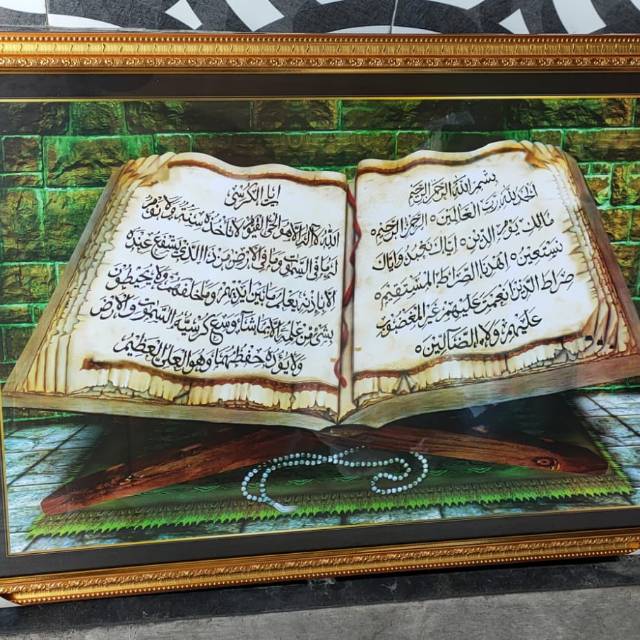 بسم الله الرحمن الرحيم
الحمد لله رب العالمين ٥ الرحمن الرحيم ٥
مالك يوم الدين ٥ اياك نعبد واياك
نستعين ٥ اهدنا الصراط المستقيم ٥
صراط الذين انعمت عليهم غير المغضوب
عليهم ولا الضالين ٥
اية الكرسي
الله لا اله الا هو الحي القيوم لا تاخذه سنة ولا نوم
له ما في السموت وما في الارض من ذا الذي يشفع عنده
الا باذنه يعلم ما بين ايديهم وما خلفهم ولا يحيطون
بشيء من علمه الا بما شاء وسع كرسيه السموت والارض
ولا يؤده حفظهما وهو العلي العظيم